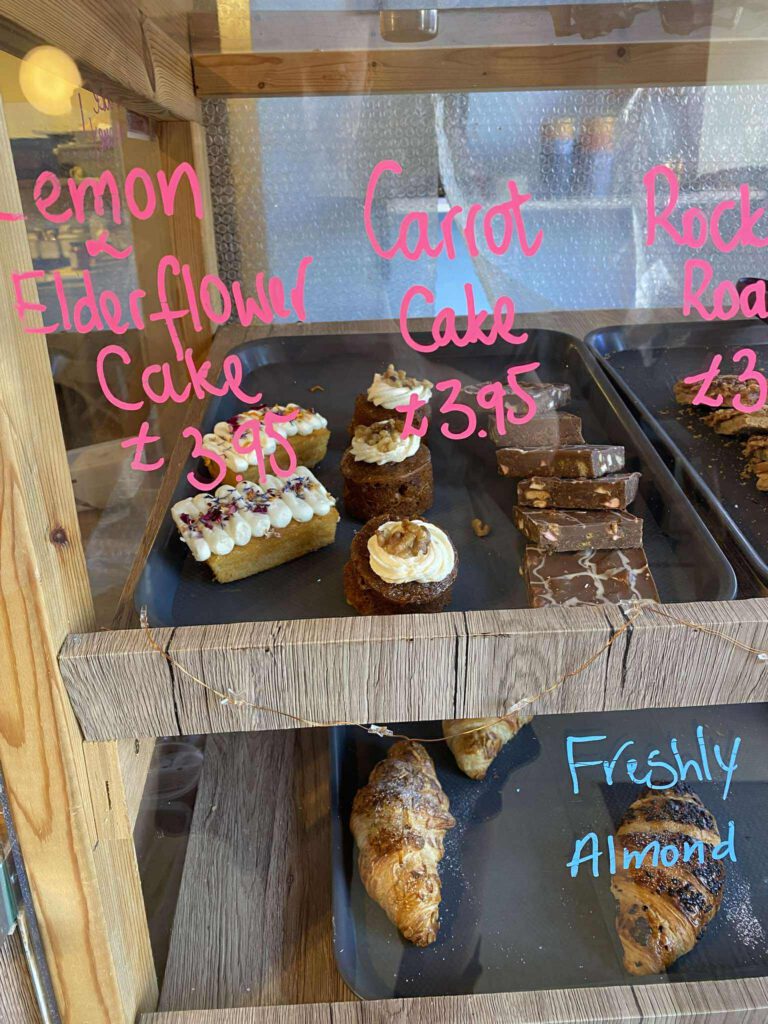 Lemon
&
Elderflower
Cake
£3.95
Carrot
Cake
£3.95
Rock
Roa
£3
Freshly
Almond